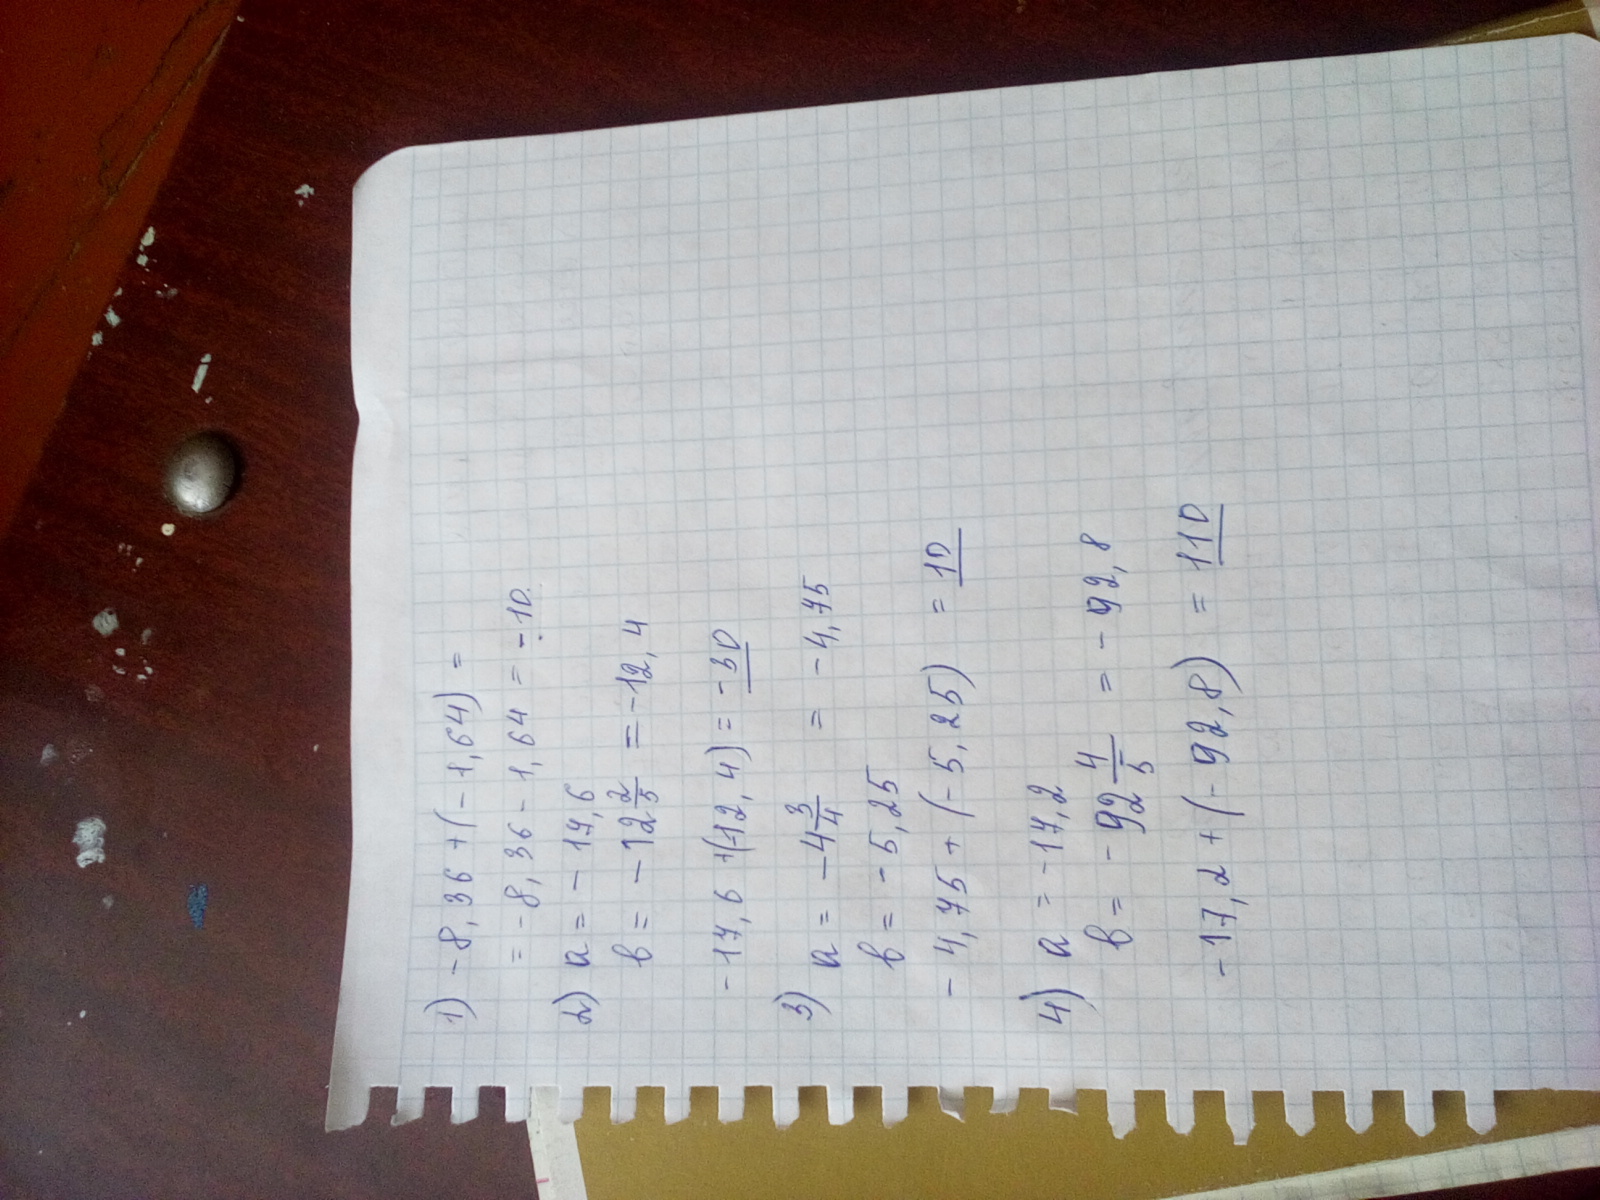 1) -8,36 + (-1,64) =
= -8,36 - 1,64 = -10.
2) a = -17,6
b = -12 2/5 = -12,4
-17,6 + (-12,4) = -30
3) a = -4 3/4 = -4,75
b = -5,25
-4,75 + (-5,25) = 10
4) a = -17,2
b = -92 4/5 = -92,8
-17,2 + (-92,8) = 110